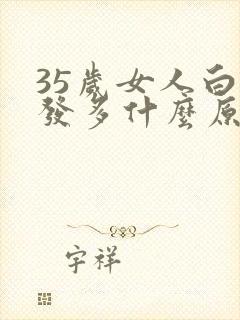 35歲女人白
發多什麼原
宇祥